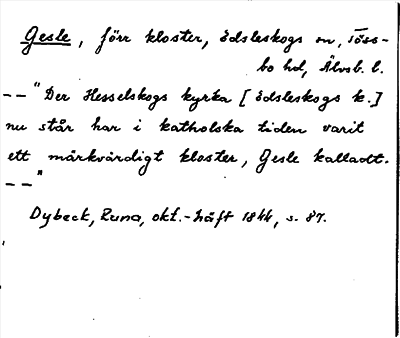 Gesle, förr kloster, Edsleskogs sn, Töss-
bo hd, Älvsb. l.
– – "Der Hesselskogs kyrka [Edsleskogs k.]
nu står har i katholska tiden varit
ett märkvärdigt kloster, Gesle kalladt.
– – "
Dybeck, Runa, okt.-häft 1844, s. 87.